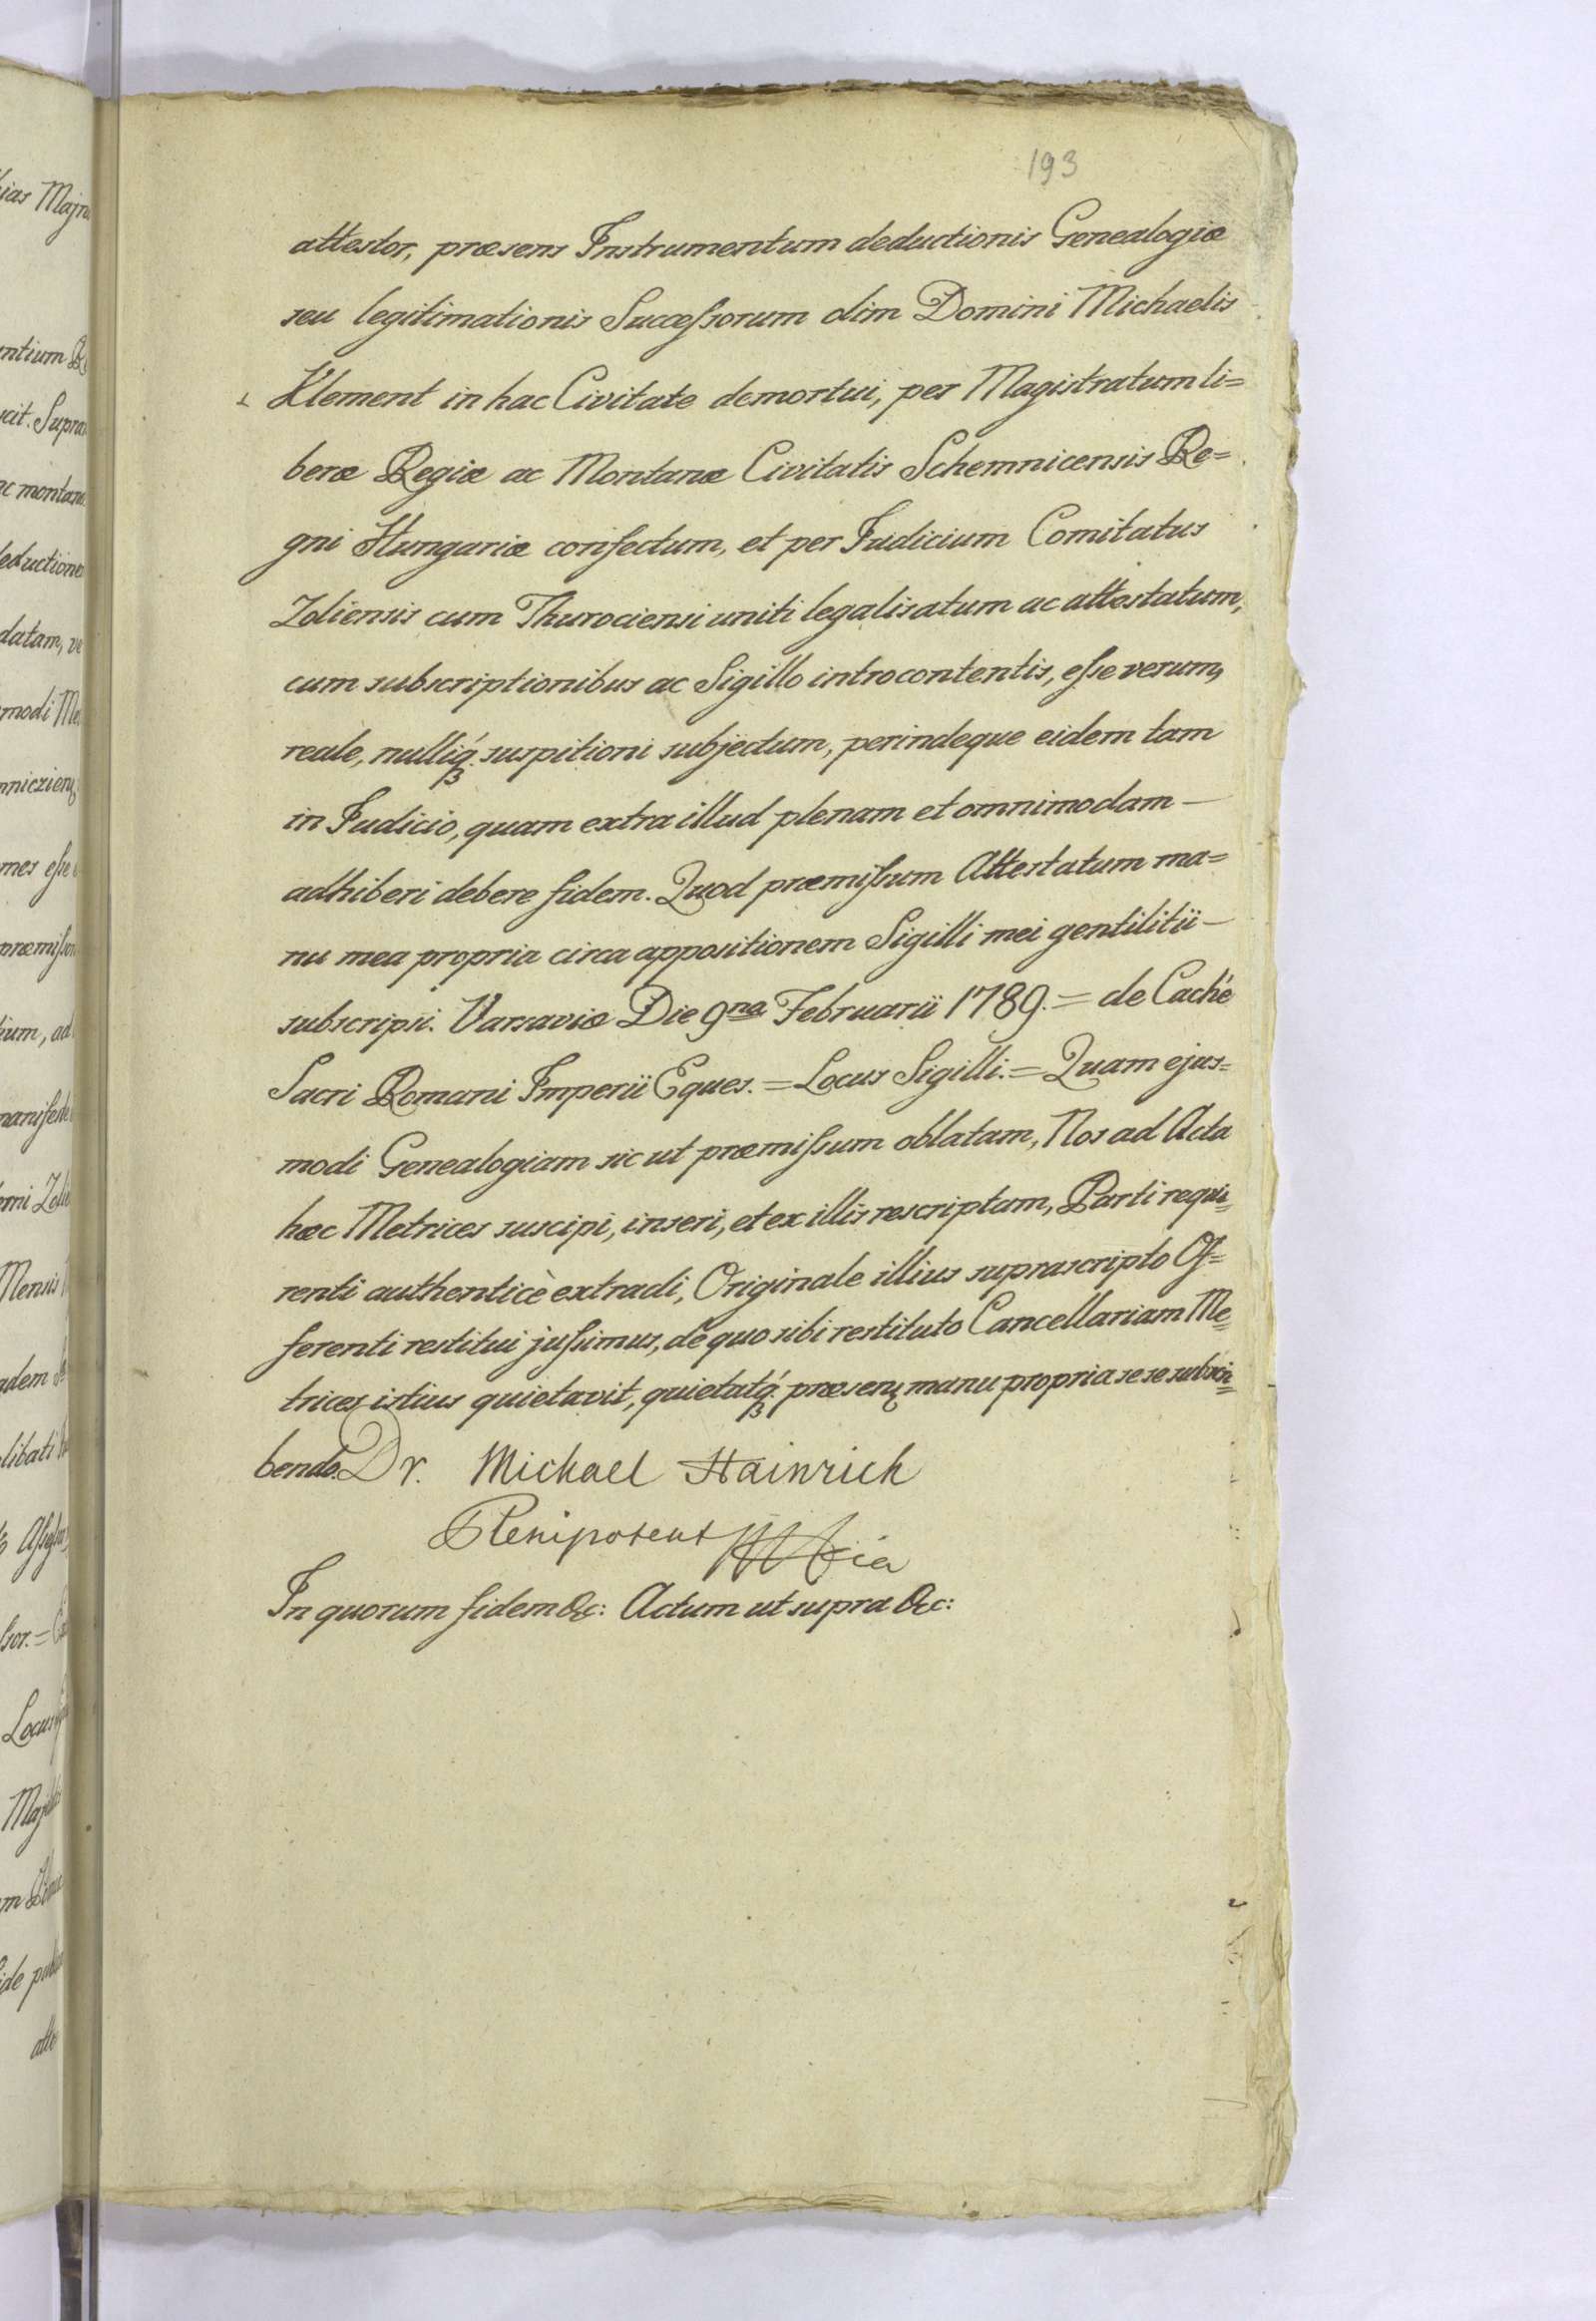 193
attestor, præsens Instrumentum deductionis Genealogiæ
seu legitimationis Succeſsorum olim Domini Michaelis
Klement in hac Civitate demortui, per Magistratum li=
beræ Regiæ ac Montanæ Civitatis Schemnicensis Re=
gni Hungariæ confectum, et per Judicium Comitatus
Zoliensis cum Thurociensi uniti legalisatum ac attestatum,
cum subscriptionibus ac Sigillo introcontentis, eſse verum,
reale, nulliq́ꝫ suspitioni subjectum, perindeque eidem tam
in Judicio, quam extra illud plenam et omnimodam —
adhiberi debere fidem. Quod præmiſsum Attestatum ma=
nu mea propria circa appositionem Sigilli mei gentilitii —
subscripsi. Varsaviæ Die 9na Februarii 1789. = de Caché
Sacri Romani Imperii Eques. = Locus Sigilli. = Quam ejus=
modi Genealogiam sic ut præmiſsum oblatam, Nos ad Acta
hæc Metrices suscipi, inseri, et ex illis rescriptam, Parti requi=
renti authenticè extradi, Originale illius suprascripto Of=
ferenti restitui juſsimus, de quo sibi restituto Cancellariam Me=
trices istius quietavit, quietatq́ꝫ præsenꝫ manu propria se se subscri=
bendo. Dr. Michael Hainrich
Plenipotent
In quorum fidem &c: Actum ut supra &c: